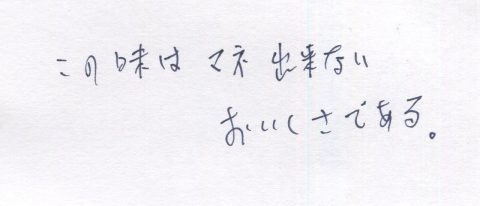 この味はマネ出来ない
おいしさである。